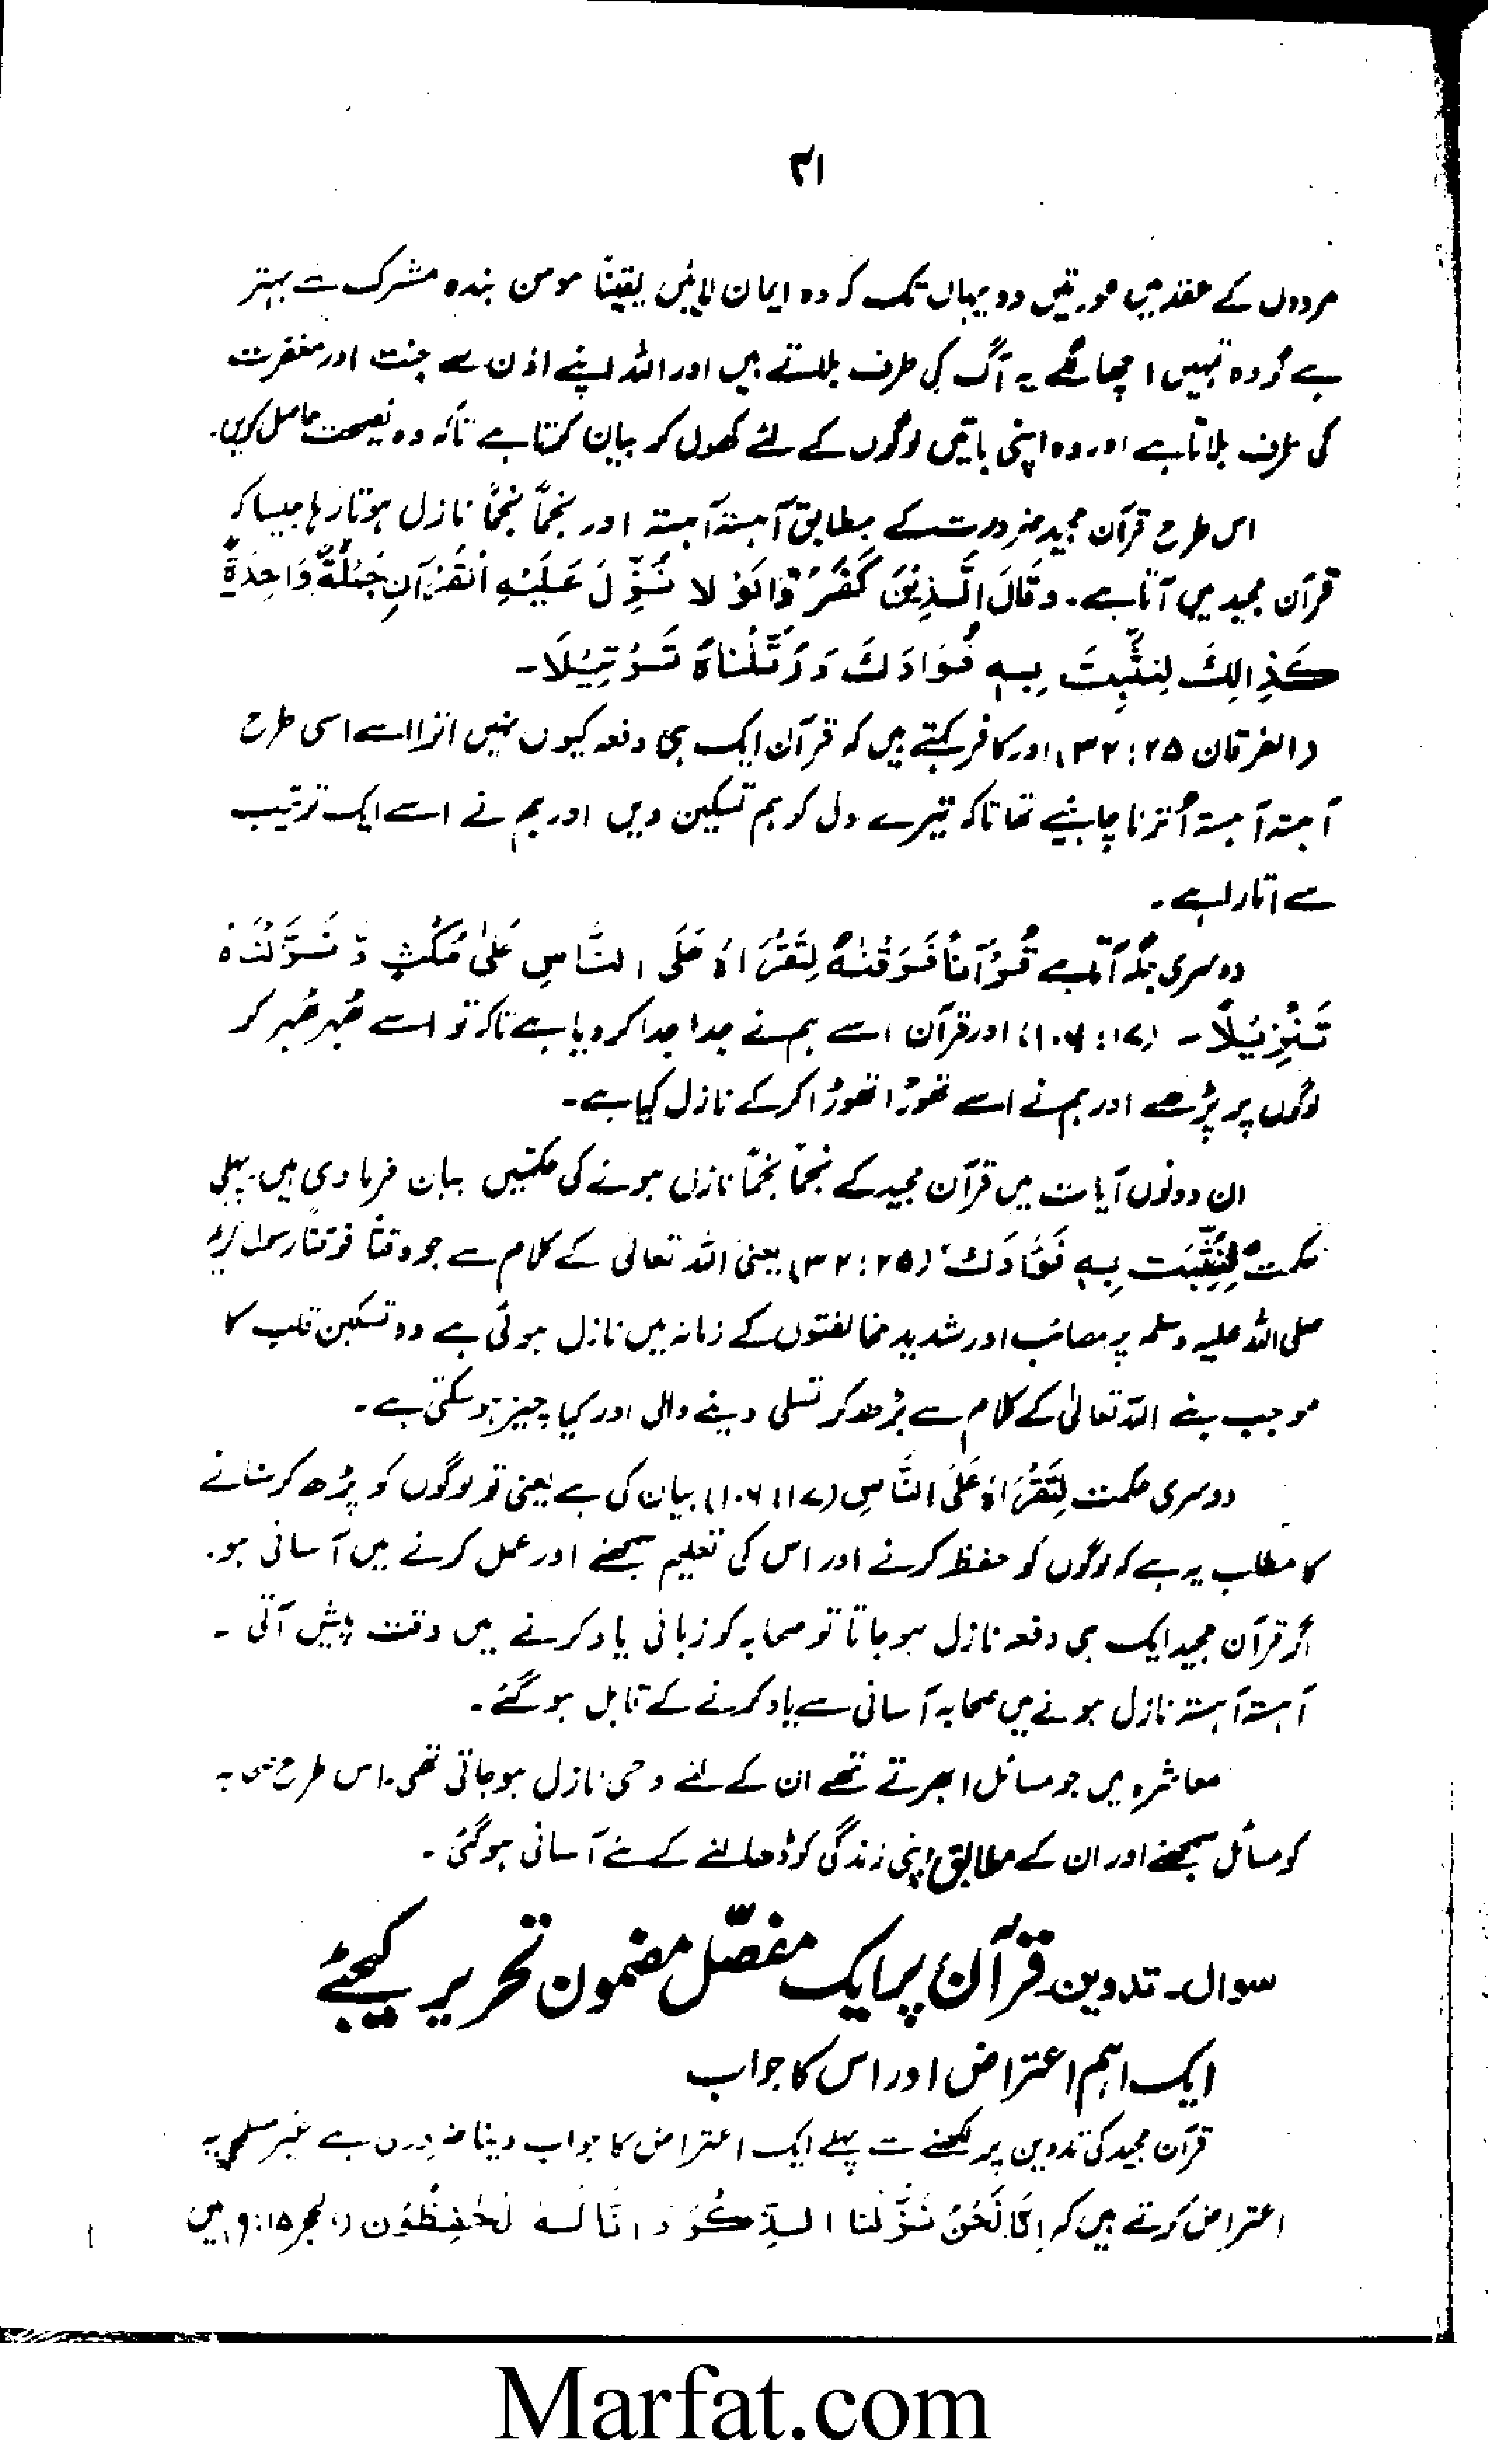 ۳۱
مردوں کے عقد میں عورتیں دو یہاں تک کہ وہ ایمان لائیں یقیناً مومن بندہ مشرک سے بہتر
ہے گو وہ تمہیں اچھا لگے یہ آگ کی طرف بلاتے ہیں اور اللہ اپنے اذن سے جنت اور مغفرت
کی طرف بلاتا ہے اور وہ اپنی باتیں لوگوں کے لئے کھول کر بیان کرتا ہے تاکہ وہ نصیحت حاصل کریں۔
اس طرح قرآن مجید ضرورت کے مطابق آہستہ آہستہ اور نجماً نجماً نازل ہوتا رہا جیسا کہ
قرآن مجید میں آتا ہے۔ وَقَالَ الَّذِيْنَ كَفَرُوْا لَوْ لَا نُزِّلَ عَلَيْهِ الْقُرْآنُ جُمْلَةً وَّاحِدَةً
كَذَالِكَ لِنُثَبِّتَ بِهٖ فُوَادَكَ وَرَتَّلْنَاهُ تَرْتِيْلًا۔
(الفرقان ۲۵: ۳۲) اور کافر کہتے ہیں کہ قرآن ایک ہی دفعہ کیوں نہیں اترا اسے اسی طرح
آہستہ آہستہ اُترنا چاہیئے تھا تاکہ تیرے دل کو ہم تسکین دیں اور ہم نے اسے ایک ترتیب
سے اتارا ہے۔
دوسری جگہ آتا ہے قُرْآنًا فَرَقْنٰهُ لِتَقْرَاَهٗ عَلَى النَّاسِ عَلٰى مُكْثٍ وَّ نَزَّلْنٰهُ
تَنْزِيْلًا۔ (۱۷: ۱۰۶) اور قرآن اسے ہم نے جدا جدا کر دیا ہے تاکہ تو اسے ٹھہر ٹھہر کر
لوگوں پر پڑھے اور ہم نے اسے تھوڑا تھوڑا کر کے نازل کیا ہے۔
ان دونوں آیات میں قرآن مجید کے نجماً نجماً نازل ہونے کی حکمتیں بیان فرما دی ہیں۔ پہلی
حکمت لِنُثَبِّتَ بِهٖ فُوَادَكَ (۲۵: ۳۲) یعنی اللہ تعالی کے کلام سے جو وقتاً فوقتاً رسول کریم
صلی اللہ علیہ وسلم پر مصائب اور شدید مخالفتوں کے زمانہ میں نازل ہوئی ہے وہ تسکین قلب کا
موجب بنے اللہ تعالیٰ کے کلام سے بڑھ کر تسلی دینے والی اور کیا چیز ہو سکتی ہے۔
دوسری حکمت لِتَقْرَاَهٗ عَلَى النَّاسِ (۱۷: ۱۰۶) بیان کی ہے یعنی تو لوگوں کو پڑھ کر سنانے
کا مطلب یہ ہے کہ لوگوں کو حفظ کرنے اور اس کی تعلیم سمجھنے اور عمل کرنے میں آسانی ہو۔
اگر قرآن مجید ایک ہی دفعہ نازل ہو جاتا تو صحابہ کو زبانی یاد کرنے میں دقت پیش آتی ۔
آہستہ آہستہ نازل ہونے میں صحابہ آسانی سے یاد کرنے کے قابل ہو گئے ۔
معاشرہ میں جو مسائل ابھرتے تھے ان کے لئے وحی نازل ہو جاتی تھی۔ اس طرح صحابہ
کو مسائل سمجھنے اور ان کے مطابق اپنی زندگی کو ڈھالنے کے لئے آسانی ہو گئی ۔
سوال۔ تدوین قرآن پر ایک مفصّل مضمون تحریر کیجئے
ایک اہم اعتراض اور اس کا جواب
قرآن مجید کی تدوین پر لکھنے سے پہلے ایک اعتراض کا جواب دینا ضروری ہے غیر مسلم یہ
اعتراض کرتے ہیں کہ اِنَّا نَحْنُ نَزَّلْنَا الذِّكْرَ وَ اِنَّا لَهٗ لَحٰفِظُوْنَ (الحجر ۱۵: ۹) میں
Marfat.com